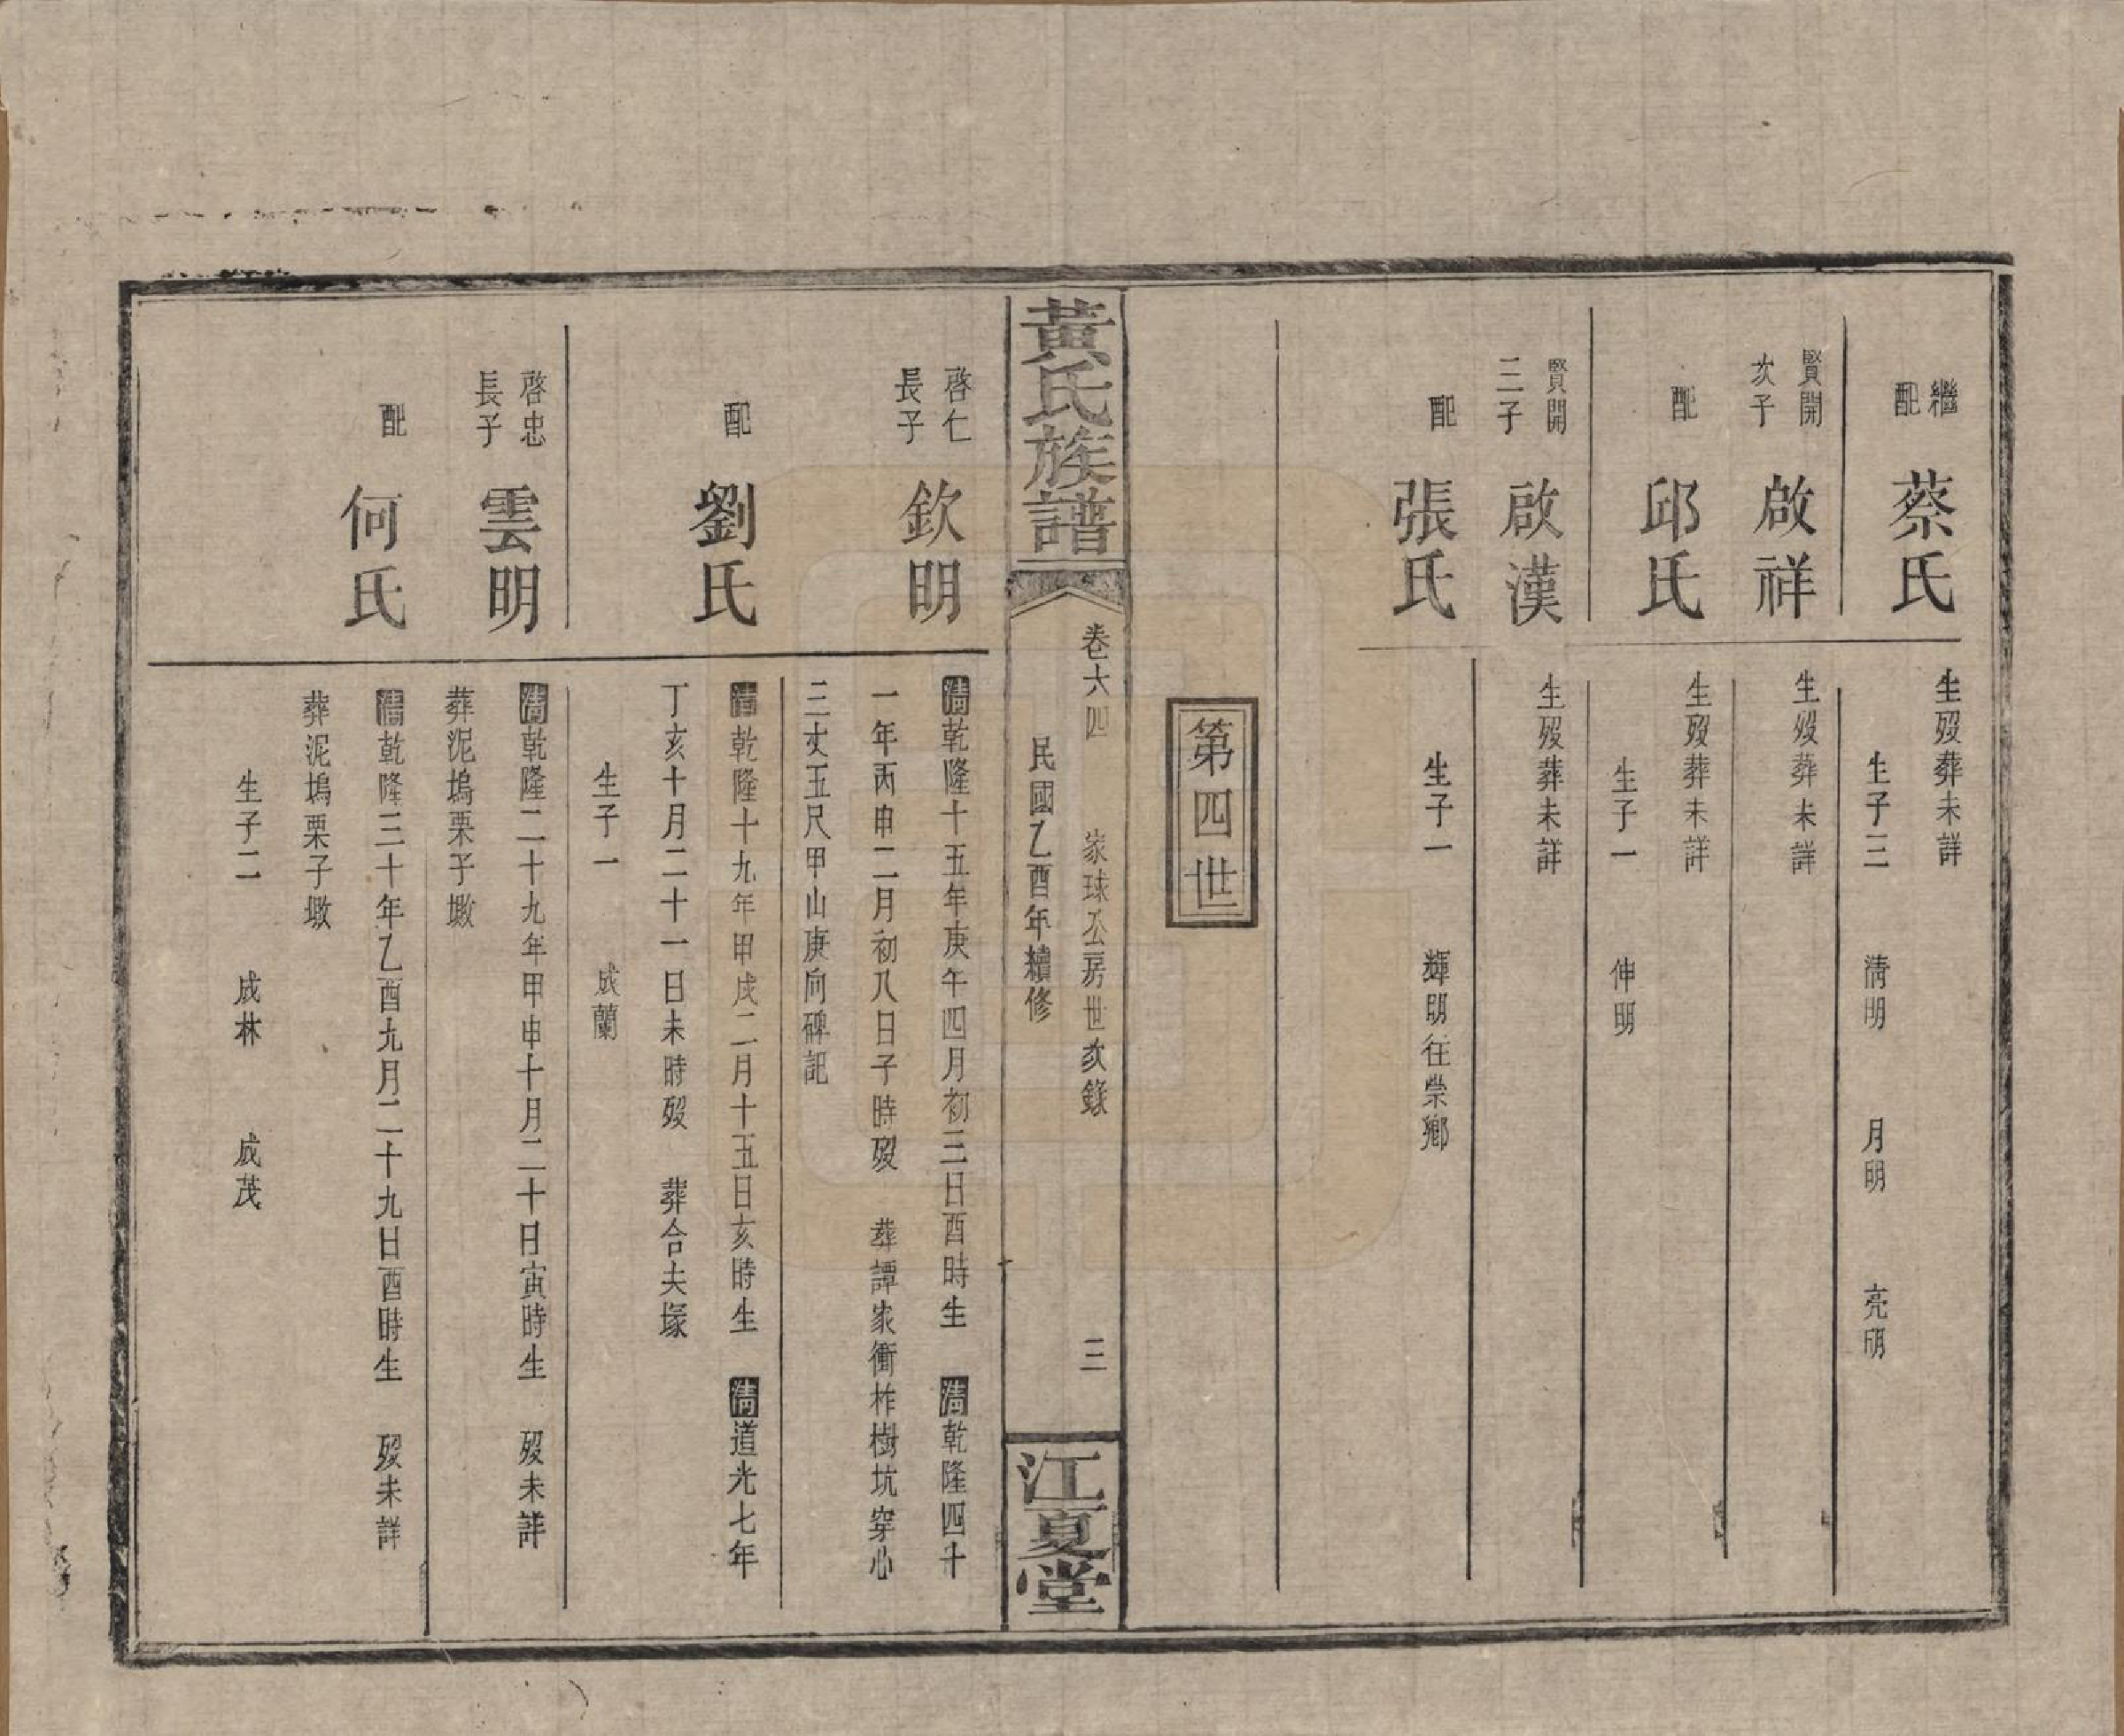 繼配 蔡氏
生歿葬未詳
生子三 清明 月明 亮明
賢開次子 啟祥
生歿葬未詳
配 邱氏
生歿葬未詳
生子一 伸明
賢開三子 啟漢
生歿葬未詳
配 張氏
生子一 輝明往崇鄉
第四世
黃氏族譜
卷六四 家球公房世次錄 三
民國乙酉年續修
江夏堂
啓仁長子 欽明
清乾隆十五年庚午四月初三日酉時生 清乾隆四十
一年丙申二月初八日子時歿 葬譚家衝柞樹坑穿心
三丈五尺甲山庚向碑記
配 劉氏
清乾隆十九年甲戌二月十五日亥時生 清道光七年
丁亥十月二十一日未時歿 葬合夫塚
生子一 成蘭
啓忠長子 雲明
清乾隆二十九年甲申十月二十日寅時生 歿未詳
葬泥塢栗子墩
配 何氏
清乾隆三十年乙酉九月二十九日酉時生 歿未詳
葬泥塢栗子墩
生子二 成林 成茂